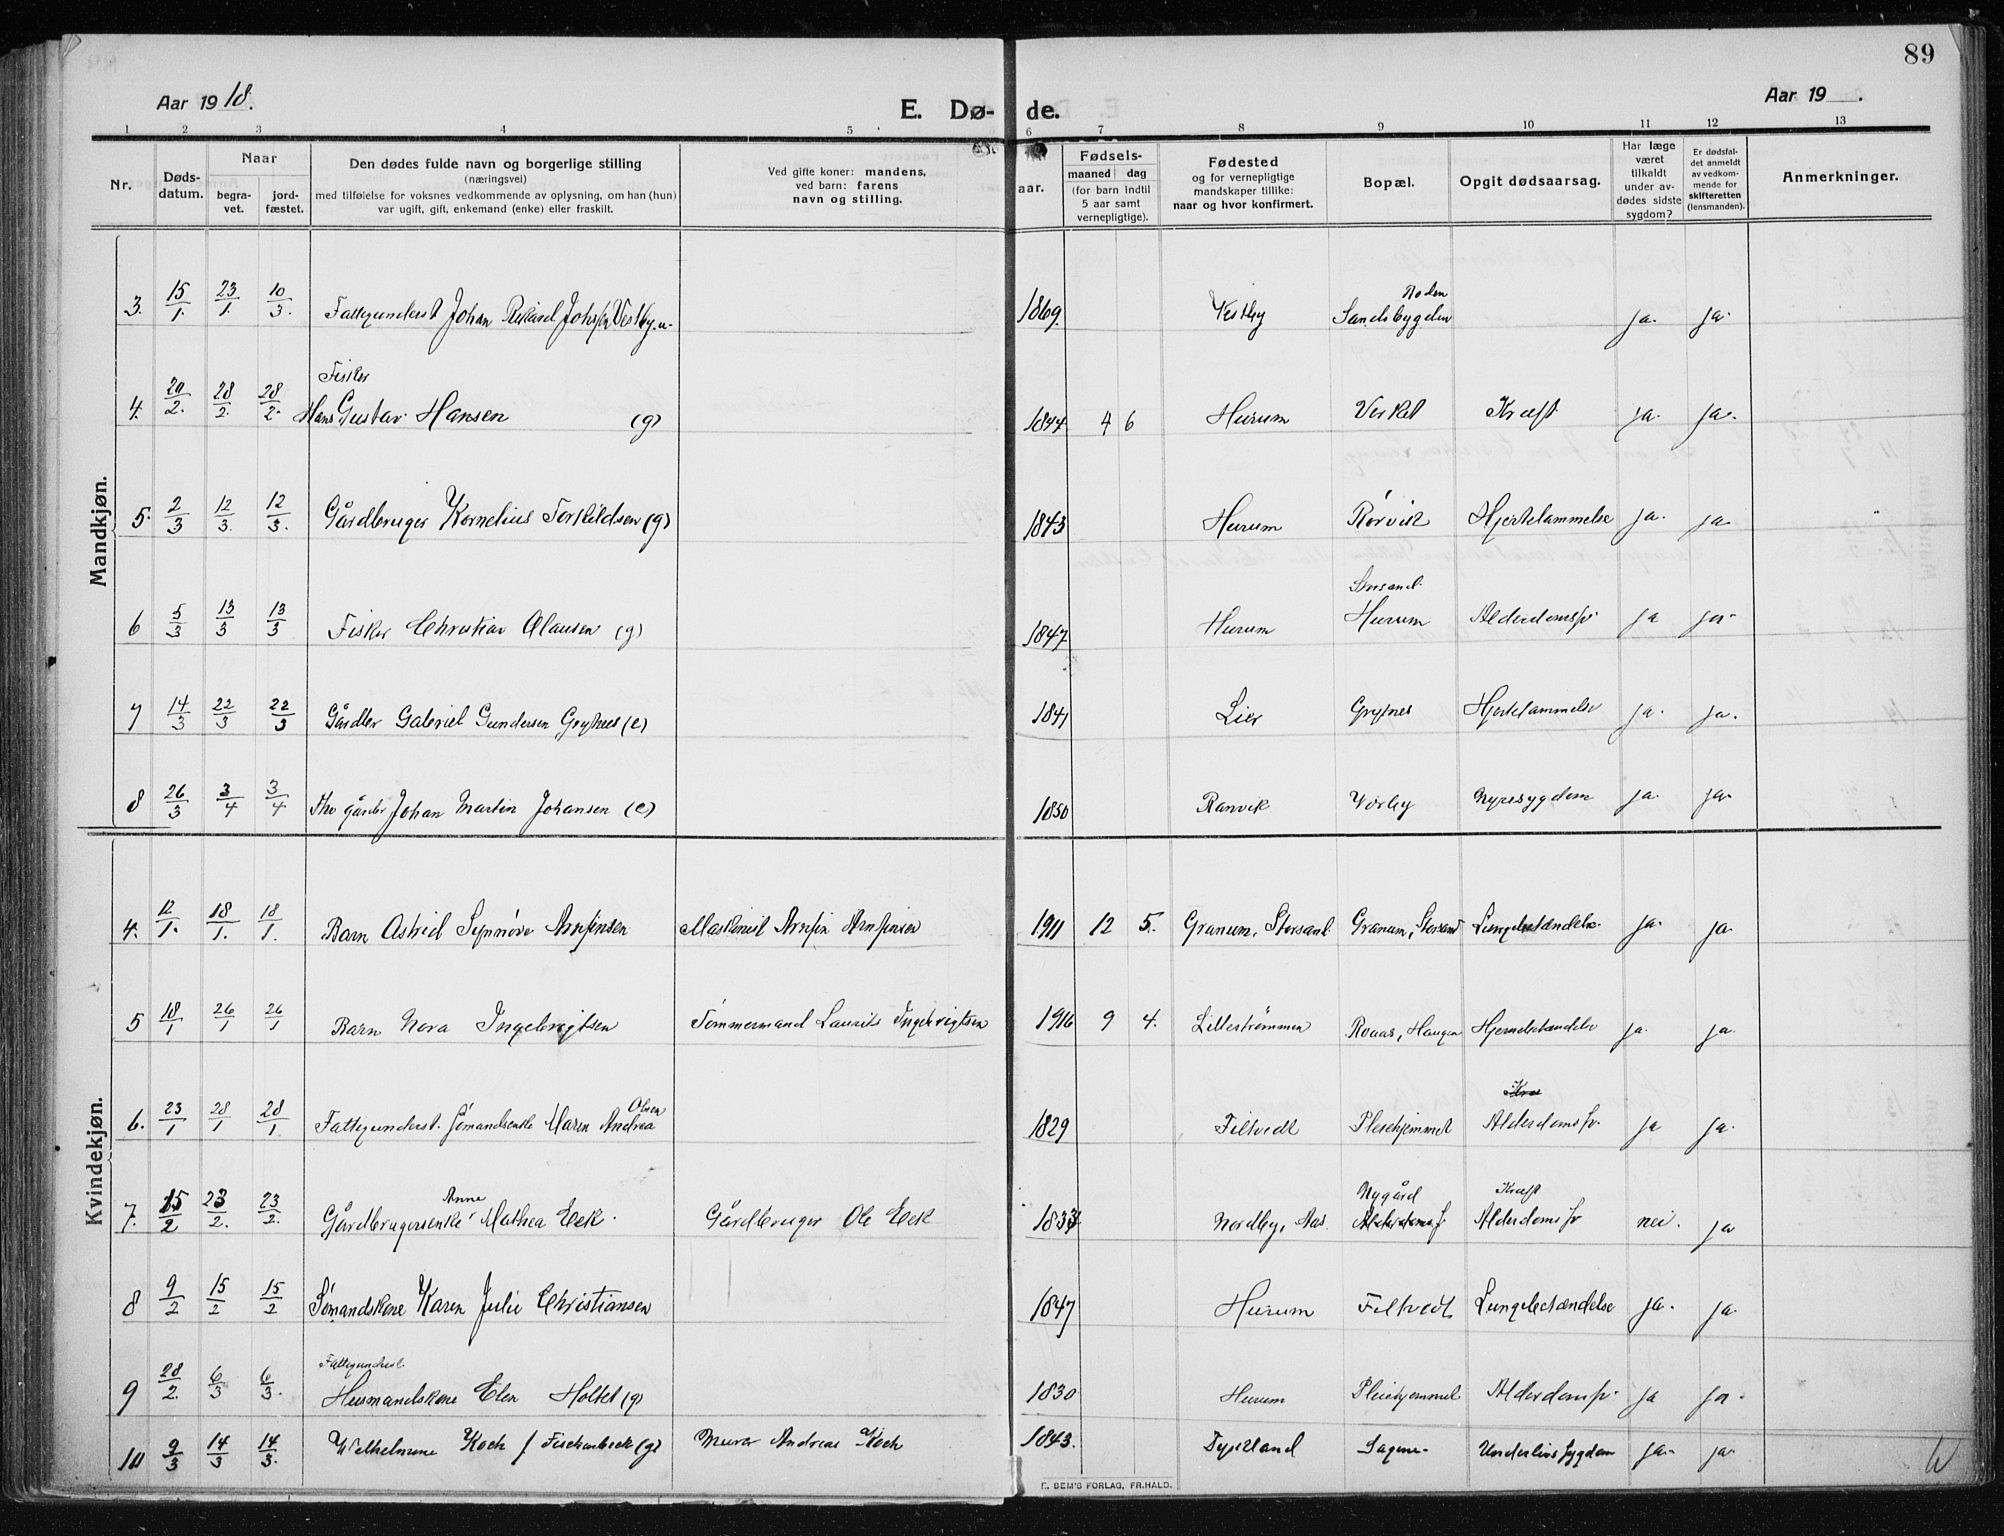 89
Aar 1918.
E. Dø- de.
Aar 19 .
1 2 3 4 5 6 7 8 9 10 11 12 13
Nr.
Døds-
datum.
Naar
begra-
vet.
jord-
fæstet.
Den dødes fulde navn og borgerlige stilling
(næringsvei)
med tilføielse for voksnes vedkommende av oplysning, om han (hun)
var ugift, gift, enkemand (enke) eller fraskilt.
Ved gifte koner: mandens,
ved barn: farens
navn og stilling.
aar.
Fødsels-
maaned dag
(for barn indtil
5 aar samt
vernepligtige).
Fødested
og for vernepligtige
mandskaper tillike:
naar og hvor konfirmert.
Bopæl.
Opgit dødsaarsag.
Har læge
været
tilkaldt
under av-
dødes sidste
sygdom?
Er dødsfal-
det anmeldt
av vedkom-
mende for
skifteretten
(lensmanden).
Anmerkninger.
Mandkjøn.
Roden
3. 15/1. 23/1. 10/3. Fattigunderst Johan Vestby u. 1869. Vestby Sandsbygden ja. ja.
Fisker
4. 20/2. 28/2. 28/2. Hans Gustav Hansen (g) 1844 4 6 Hurum Verket Kræft ja. ja.
5. 2/3 12/3. 12/3. Gårdbruger Kornelius Torkildsen (g) 1843 Hurum Rørvik Hjertelammelse ja. ja.
Storsand
6 5/3 13/3 13/3 Fisker Christian Olausen (g) 1847. Hurum Hurum Alderdomssv ja ja.
7 14/3 22/3 22/3 Gårdbr Gabriel Gundersen Grytnes (e) 1841 Lier Grytnes Hjertelammelse ja. ja.
8 26/3 3/4 3/4 gårdbr Johan Martin Johansen (e) 1850 Ranvik Nyresygdom ja. ja.
Kvindekjøn.
4. 12/1. 18/1. 18/1. Barn Astrid Synnøve Arnsinsen Maskinist Arnsin Arnsinsen 1911 12 5. Granum, Storsand Granum, Storsand Lungebetændelse ja. ja.
5 18/1 26/1 26/1 Barn Nora Ingebrigtsen Tømmermand Laurits Ingebrigtsen 1916 9 4. Lillestrømmen Roaas, Haugen Hjernebetændelse ja. ja.
Olsen
6. 23/1 28/1 28/1. Fattigunderst. Sømandsenke Maren Andrea 1829 Filtvedt Pleiehjemmet Alderdomssv. ja ja.
Anne Nygård Kræft
7. 15/2 23/2. 23/2. Gårdbrugerenke Mathea Eek. Gårdbruger Ole Eek 1833 Nordby, Aas. Alderdoms Alderdomssv nei. ja
8 9/2 15/2 15/2 Sømandskone Karen Julie Christiansen 1847 Hurum Filtvedt Lungebetændelse ja. ja
Fattigunderst.
9 28/2. 6/3 6/3. Husmandskone Elen Holtet (g) 1830 Hurum Pleiehjemmet Alderdomssv. ja ja.
10 9/3 14/3 14/3. Wilhelmine Koch f Fischenbeck (g) Murer Andreas Koch 1843. Tyskland Sagene. Underlivssygdom ja. ja.
E. SEM'S FORLAG, FR.HALD.